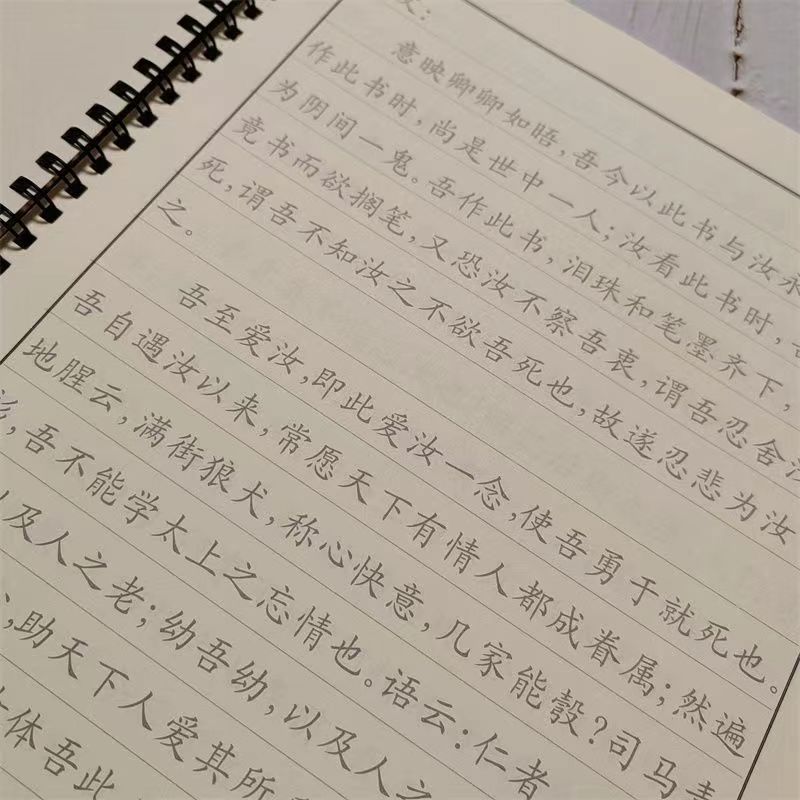 文：
意映卿卿如晤，吾今以此书与汝永
作此书时，尚是世中一人；汝看此书时，吾
为阴间一鬼。吾作此书，泪珠和笔墨齐下，
竟书而欲搁笔，又恐汝不察吾衷，谓吾忍舍汝
死，谓吾不知汝之不欲吾死也，故遂忍悲为汝
之。
吾至爱汝，即此爱汝一念，使吾勇于就死也。
吾自遇汝以来，常愿天下有情人都成眷属；然遍
地腥云，满街狼犬，称心快意，几家能彀？司马青
衫，吾不能学太上之忘情也。语云：仁者
以及人之老；幼吾幼，以及人之
，助天下人爱其所
体吾此